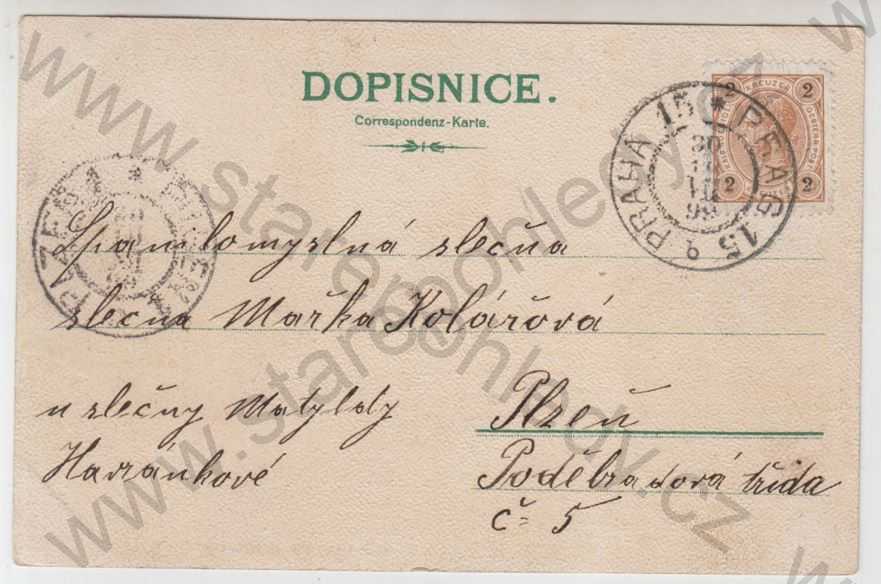 DOPISNICE.
Correspondenz-Karte.
2 KREUZER 2
2 2
PRAHA 15 * PRAG 15
30
VII
99
Spanilomyslná slečna
slečna Mařka Kolářová
u slečny Matyldy
Havránkové
Plzeň
Poděbradová třída
č 5
www.starepohledy.cz